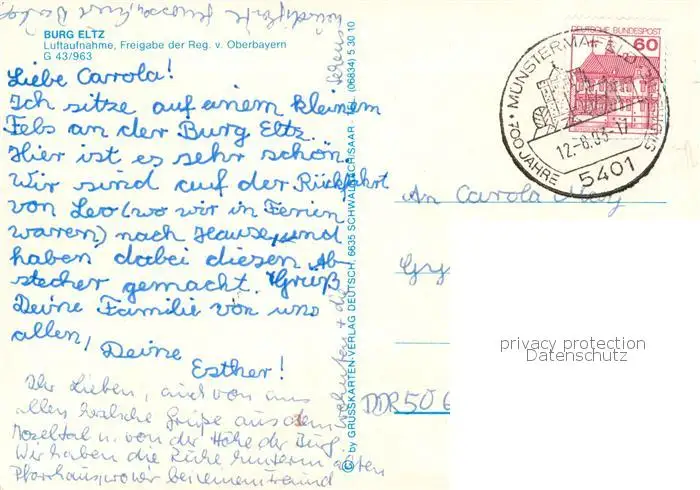 BURG ELTZ
Luftaufnahme, Freigabe der Reg. v. Oberbayern
G 43/963
Liebe Carrola!
Ich sitze auf einem kleinem
Fels an der Burg Eltz.
Hier ist es sehr schön.
Wir sind auf der Rückfahrt
von Leo (wo wir in Ferien
waren) nach Hause, und
haben dabei diesen Ab-
stecher gemacht. Grüß
Deine Familie von uns
allen,
Deine
Esther!
Ihr Lieben, auch von uns
allen herzliche Grüße aus dem
Moseltal u. von der Höhe der Burg
Wir haben die Ruhe hinterm alten
Pfarrhaus, wo wir bei einem Freund
wohnten + die
© by GRUSSKARTEN-VERLAG DEUTSCH, 6635 SCHWALBACH/SAAR · Tel. (06834) 5 30 10
DEUTSCHE BUNDESPOST
60
MÜNSTERMAIFELD
700 JAHRE
12.-8.93-17
5401
An Carola
DDR 50
privacy protection
Datenschutz